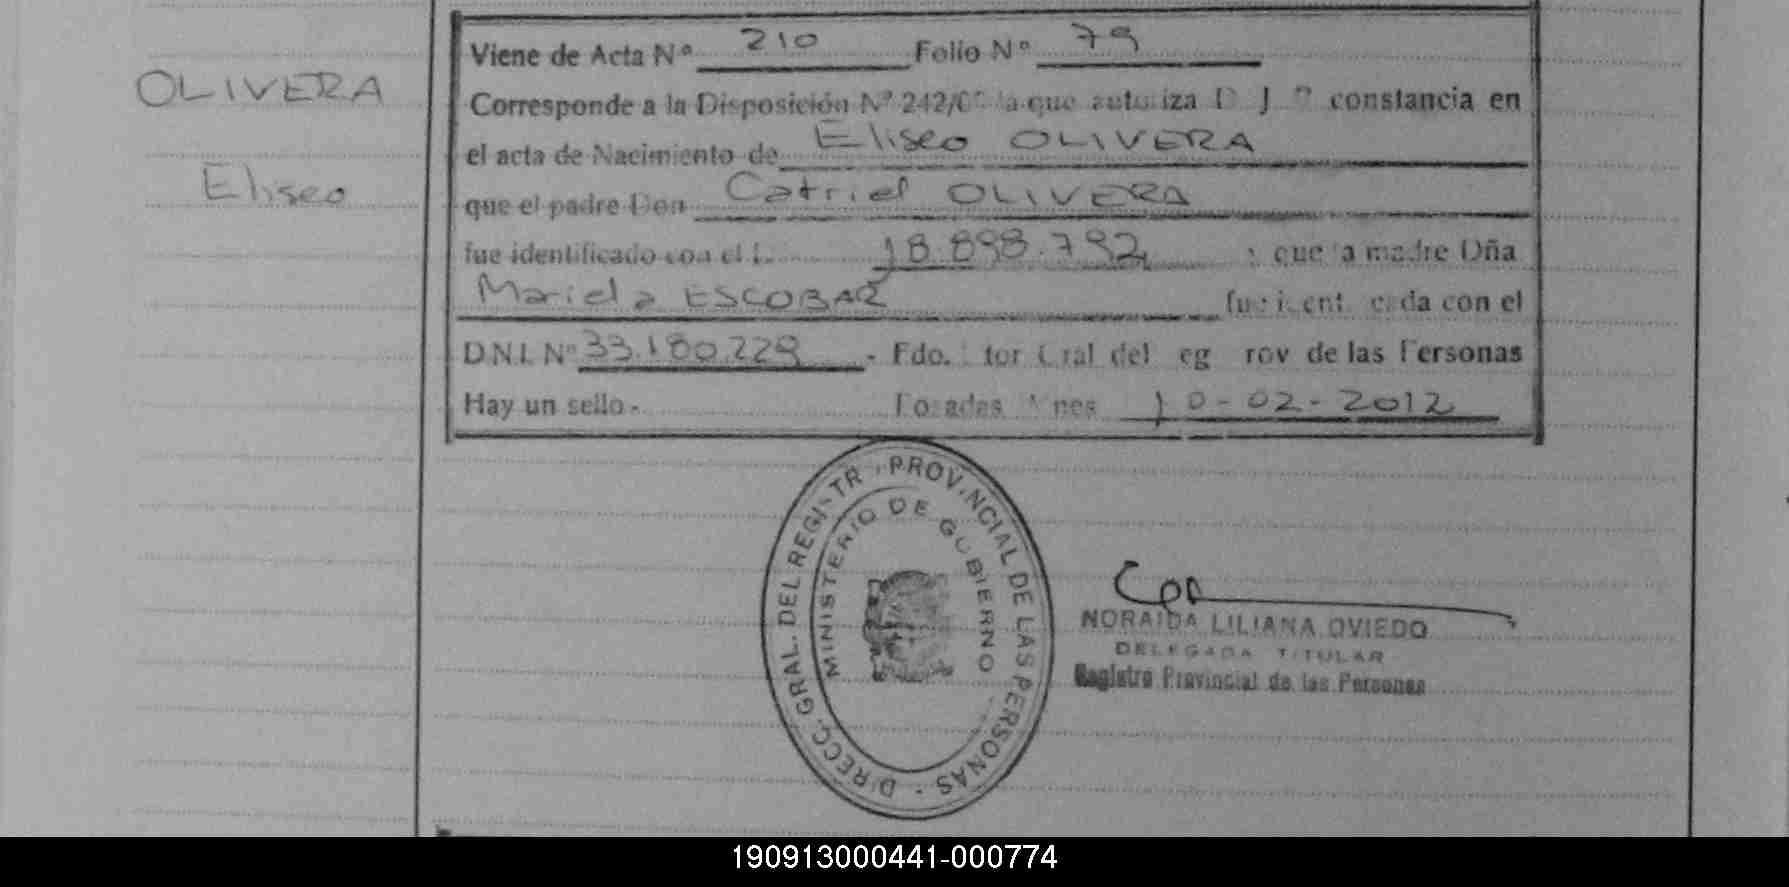 OLIVERA
Eliseo
Viene de Acta Nº 210 Folio Nº 79
Corresponde a la Disposición Nº 242/0 la que autoriza D J constancia en
el acta de Nacimiento de Eliseo OLIVERA
que el padre Don Catriel OLIVERA
fue identificado con el 18.898.792 que la madre Dña
Mariela ESCOBAR fue identificada con el
D.N.I. Nº 33.180.229 - Fdo. Gral del de las Personas
Hay un sello.- Posadas Mnes 10-02-2012
DIRECC. GRAL. DEL REGISTR. PROVINCIAL DE LAS PERSONAS
MINISTERIO DE GOBIERNO
NORAIDA LILIANA OVIEDO
DELEGADA TITULAR
Registro Provincial de las Personas
190913000441-000774